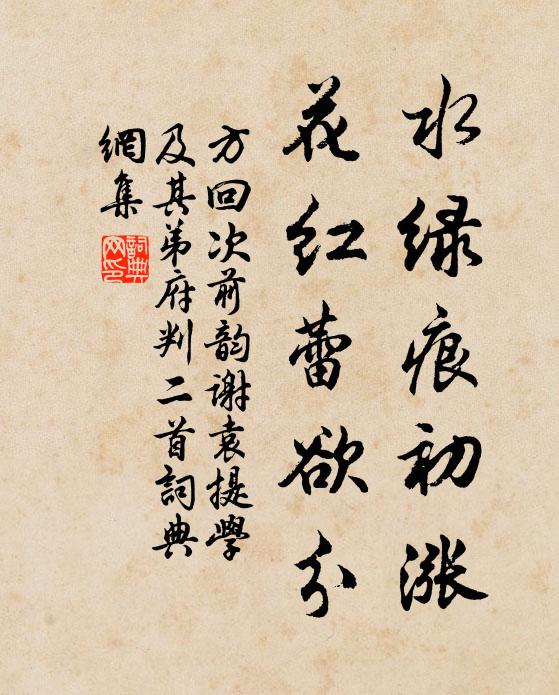 水绿痕初涨
花红蕾欲分
方回次前韵谢袁提学
及其弟府判二首詞典
網集
詞典
网印